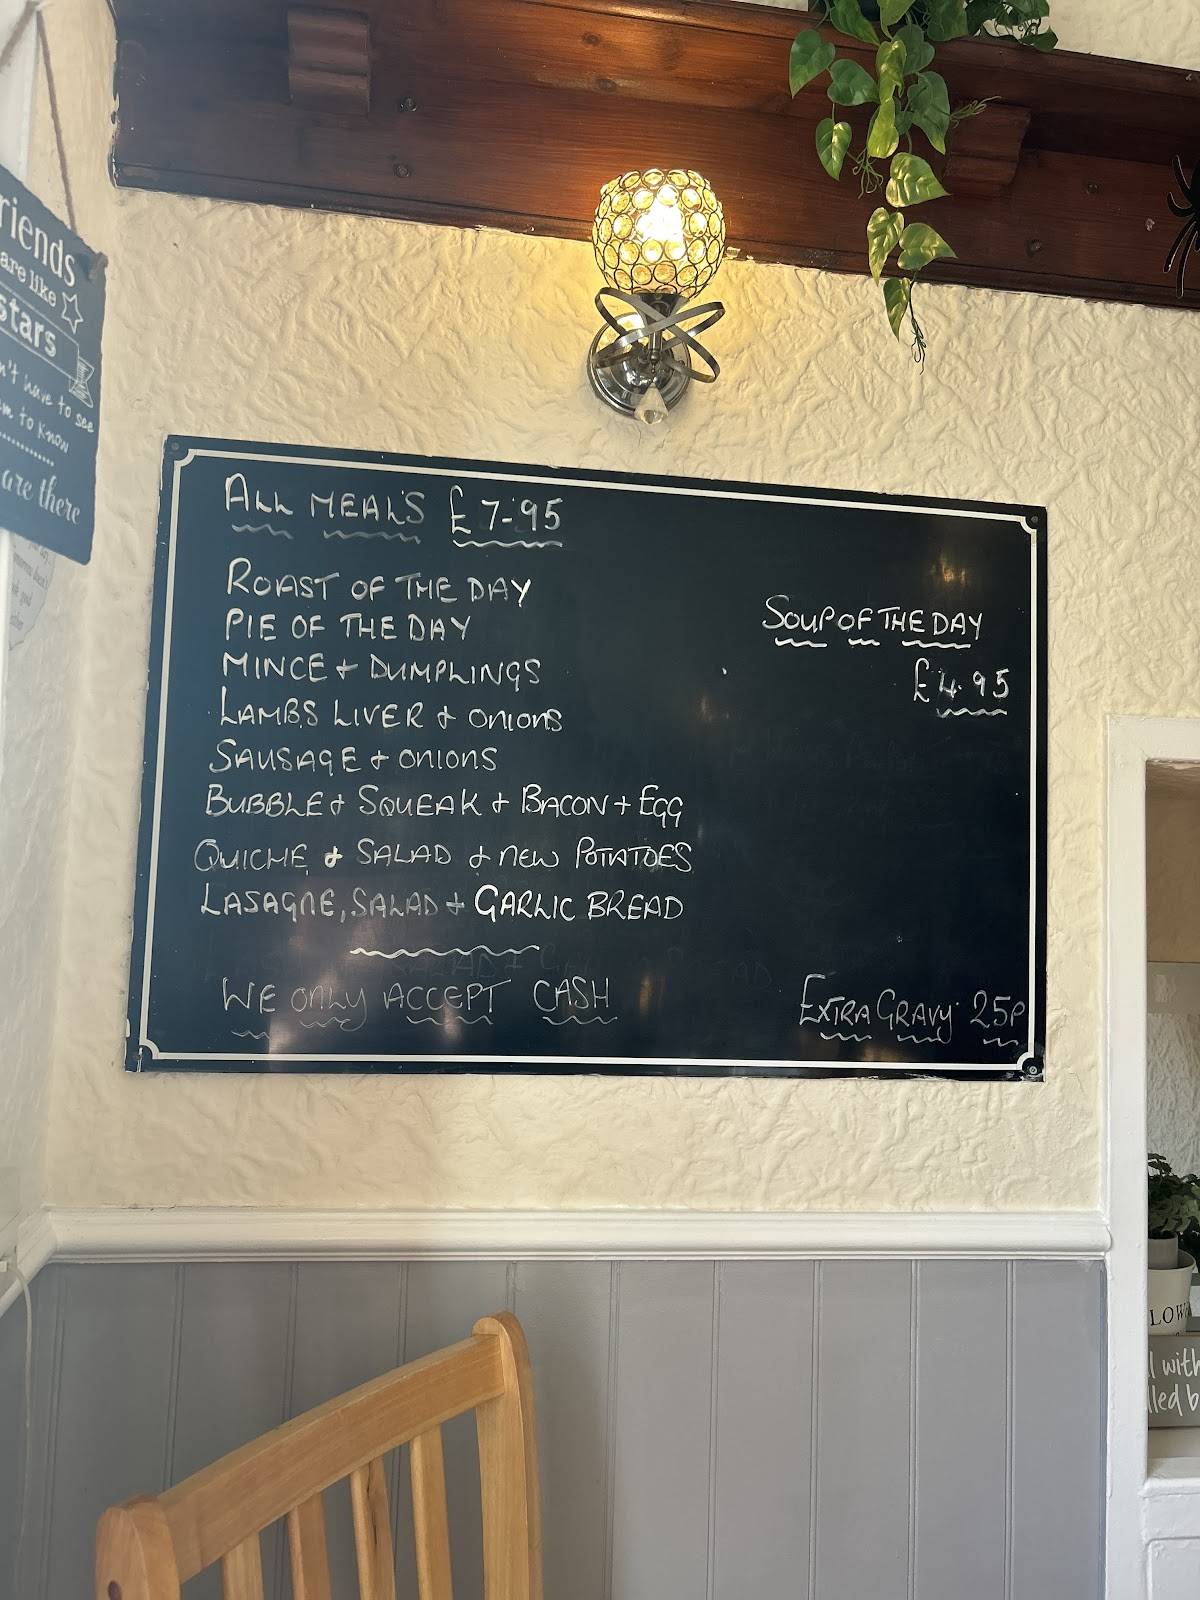 ALL MEALS £7-95
ROAST OF THE DAY
PIE OF THE DAY
MINCE & DUMPLINGS
LAMBS LIVER & ONIONS
SAUSAGE & ONIONS
BUBBLE & SQUEAK & BACON + EGG
QUICHE & SALAD & NEW POTATOES
LASAGNE, SALAD & GARLIC BREAD
WE ONLY ACCEPT CASH
SOUP OF THE DAY
£4.95
EXTRA GRAVY 25P
are like
stars
to see
to know
are there
with